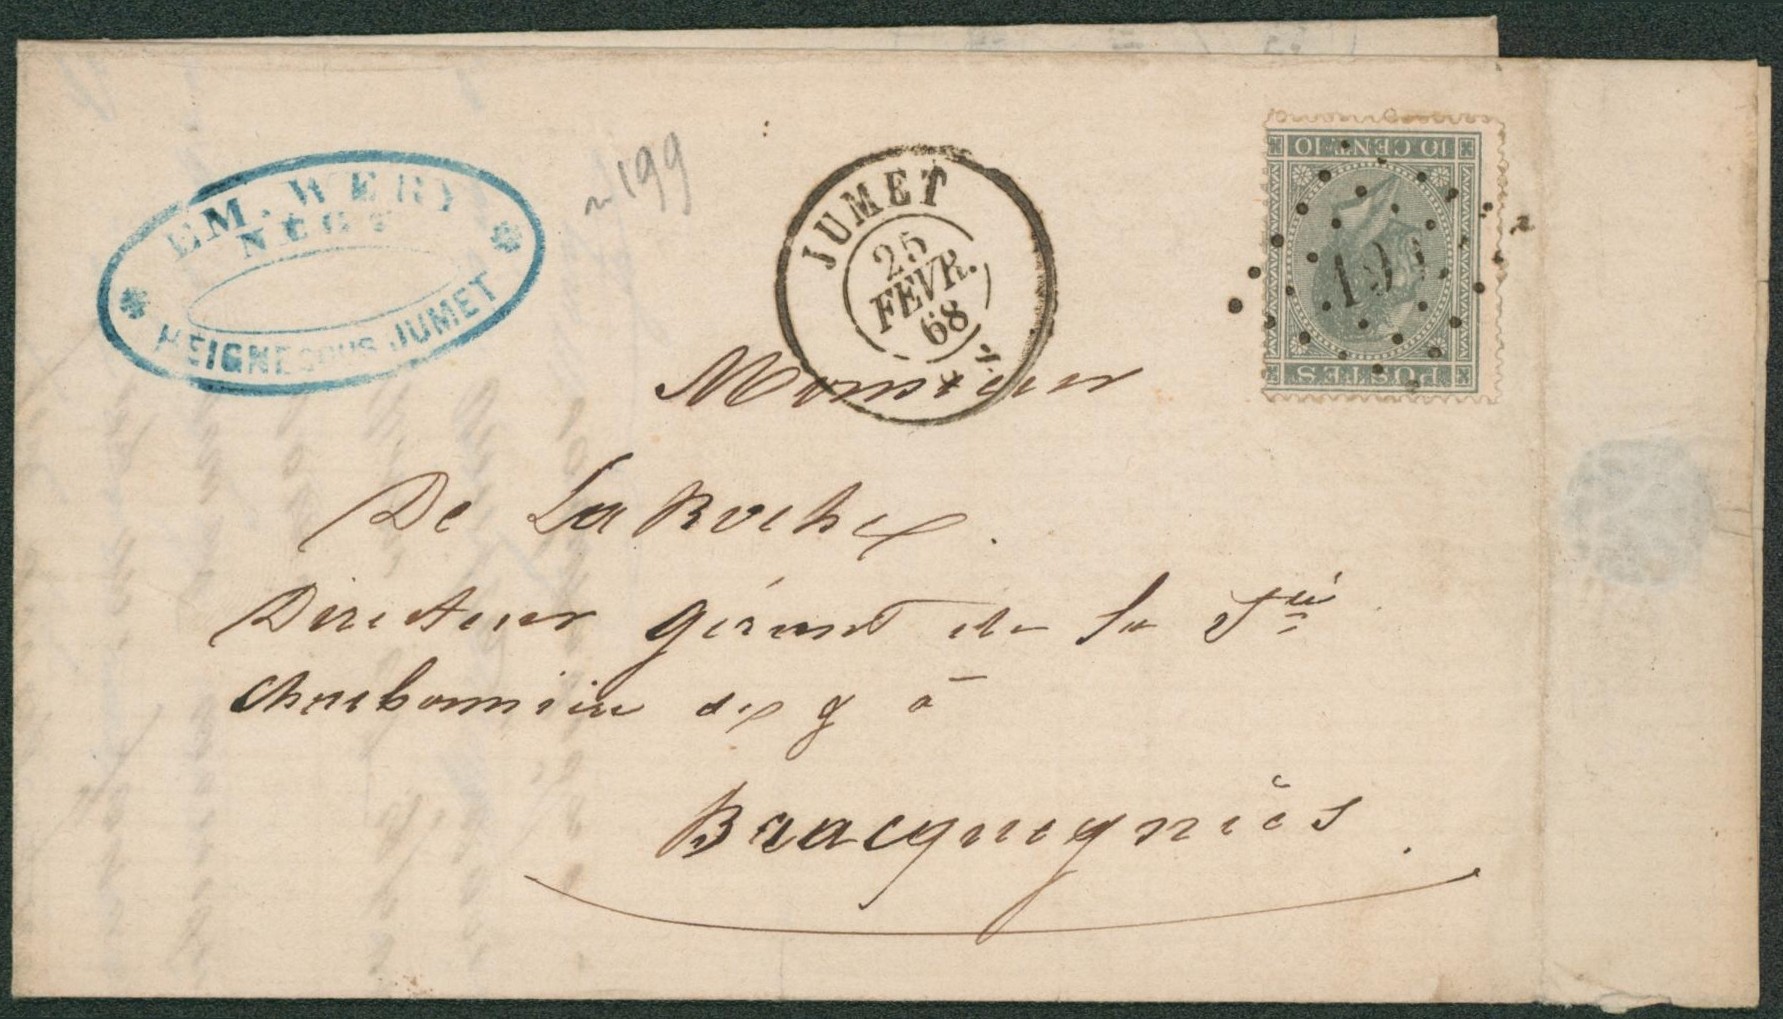 EM. WERY
NEGT
HEIGNE SOUS JUMET
199
JUMET
25
FEVR.
68
10 CENT 10
199
POSTES
Monsieur
De La Roche
Directeur gérant de la Sté
Charbonnière de, g à
Bracquegnies.